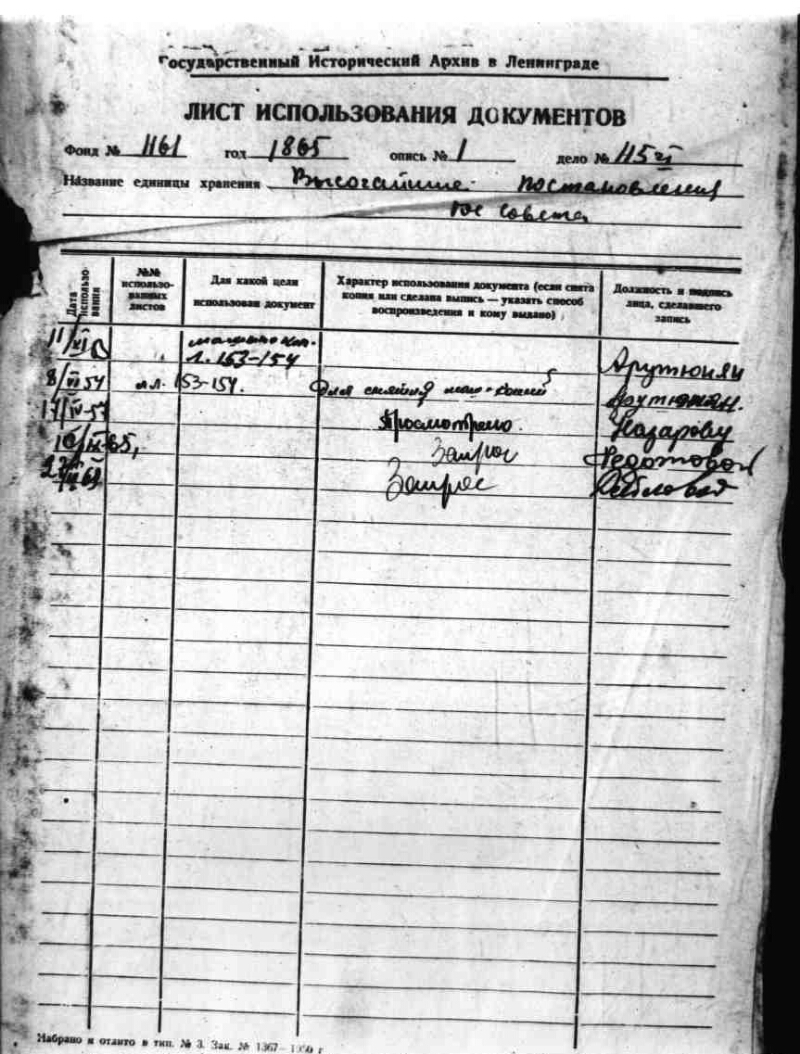 Государственный Исторический Архив в Ленинграде
ЛИСТ ИСПОЛЬЗОВАНИЯ ДОКУМЕНТОВ
Фонд № 1161 год 1865 опись № 1 дело № 115
Название единицы хранения Высочайшие постановления
Гос совета
Дата использования
№№ использованных листов
Для какой цели использован документ
Характер использования документа (если снята копия или сделана выпись — указать способ воспроизведения и кому выдано)
Должность и подпись лица, сделавшего запись
11/XI
л. 153-154 Арутюнян
8/VI 54 л.л. 153-154. Для снятия Арутюнян.
17/IV-57 Просмотрено. Назарову
/IX-65, Запрос Федотовой
Запрос
Набрано и отлито в тип. № 3. Зак. № 1367—1950 г